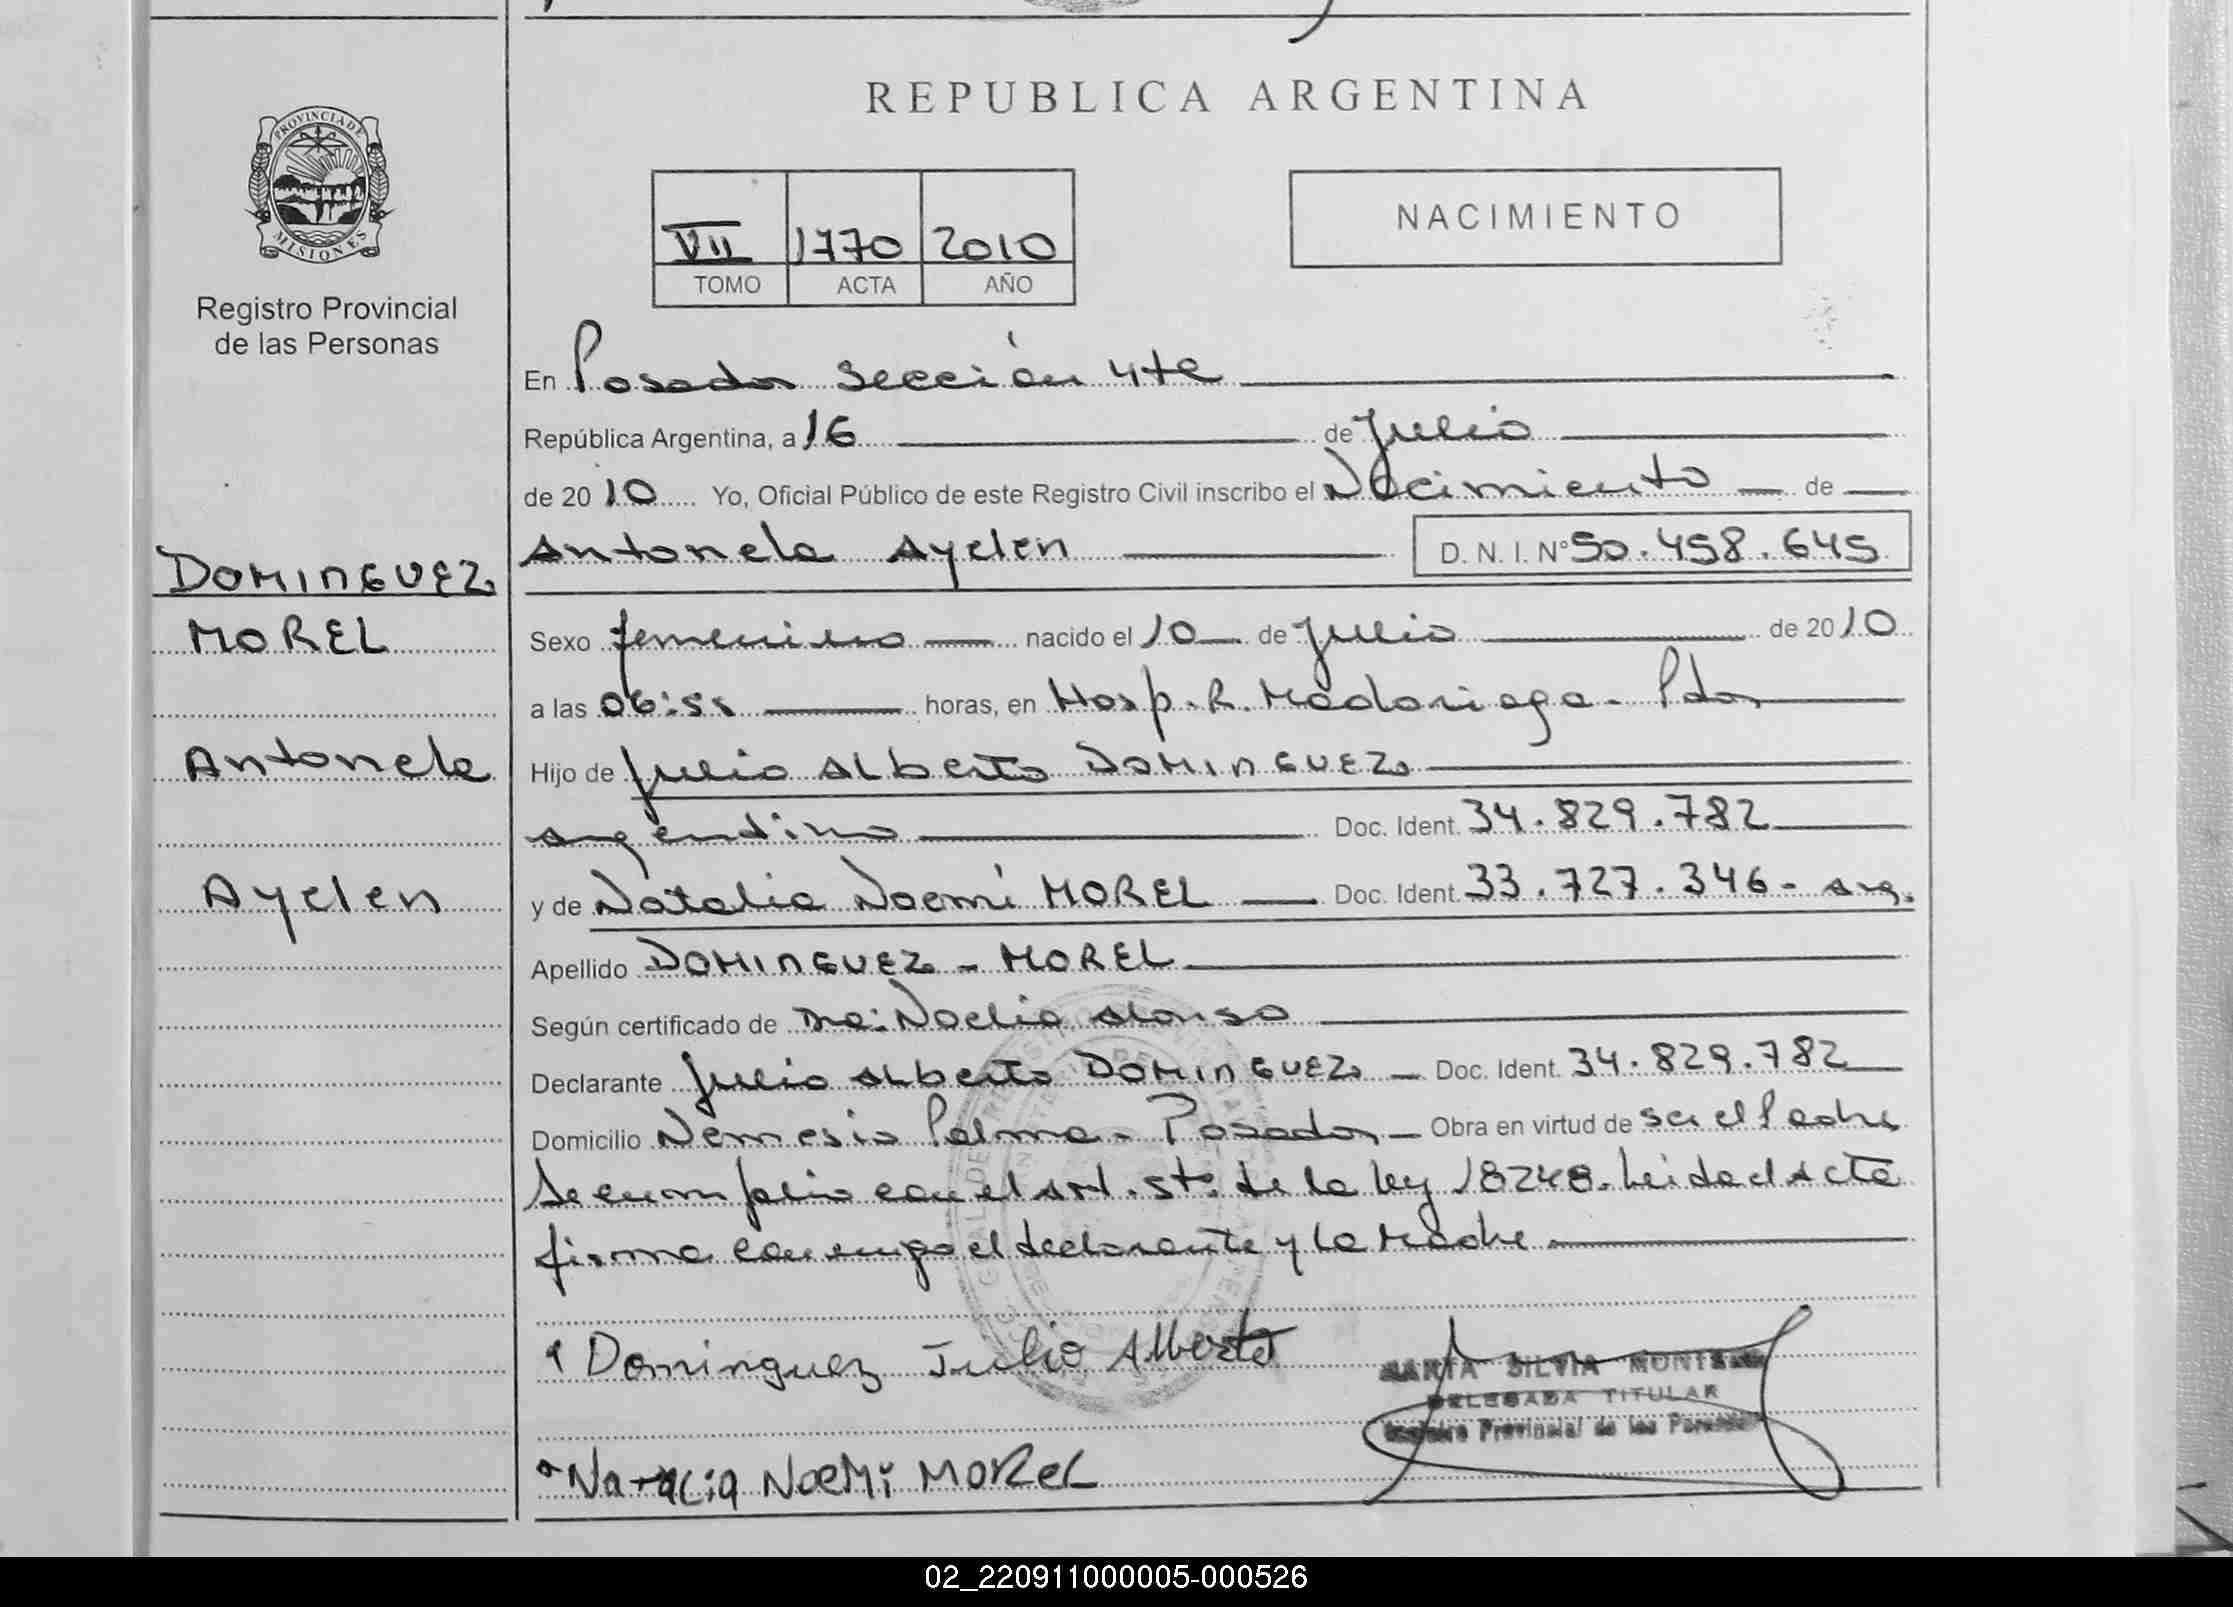 REPUBLICA ARGENTINA
PROVINCIA DE
MISIONES
Registro Provincial
de las Personas
VII 1770 2010
TOMO ACTA AÑO
NACIMIENTO
DOMINGUEZ
MOREL
Antonela
Ayelen
En Posadas Sección 4ta
República Argentina, a 16 de Julio
de 20 10 Yo, Oficial Público de este Registro Civil inscribo el Nacimiento de
Antonela Ayelen D. N. I. N° 50.458.645
Sexo femenino nacido el 10 de Julio de 20 10
a las 06:55 horas, en Hosp. R. Madariaga - Pdas
Hijo de Julio Alberto DOMINGUEZ
argentino Doc. Ident. 34.829.782
y de Natalia Noemí MOREL Doc. Ident. 33.727.346 - arg.
Apellido DOMINGUEZ - MOREL
Según certificado de Noelia Alonso
Declarante Julio Alberto DOMINGUEZ Doc. Ident. 34.829.782
Domicilio Nemesio Palma - Posadas Obra en virtud de ser el Padre
Se cumplio con el Art. 5to. de la ley 18248. Leida el Acta
firma conmigo el declarante y la Madre
Dominguez Julio Alberto
SILVIA
DELEGADA TITULAR
Registro Provincial de las Personas
Natalia Noemi Morel
02_220911000005-000526